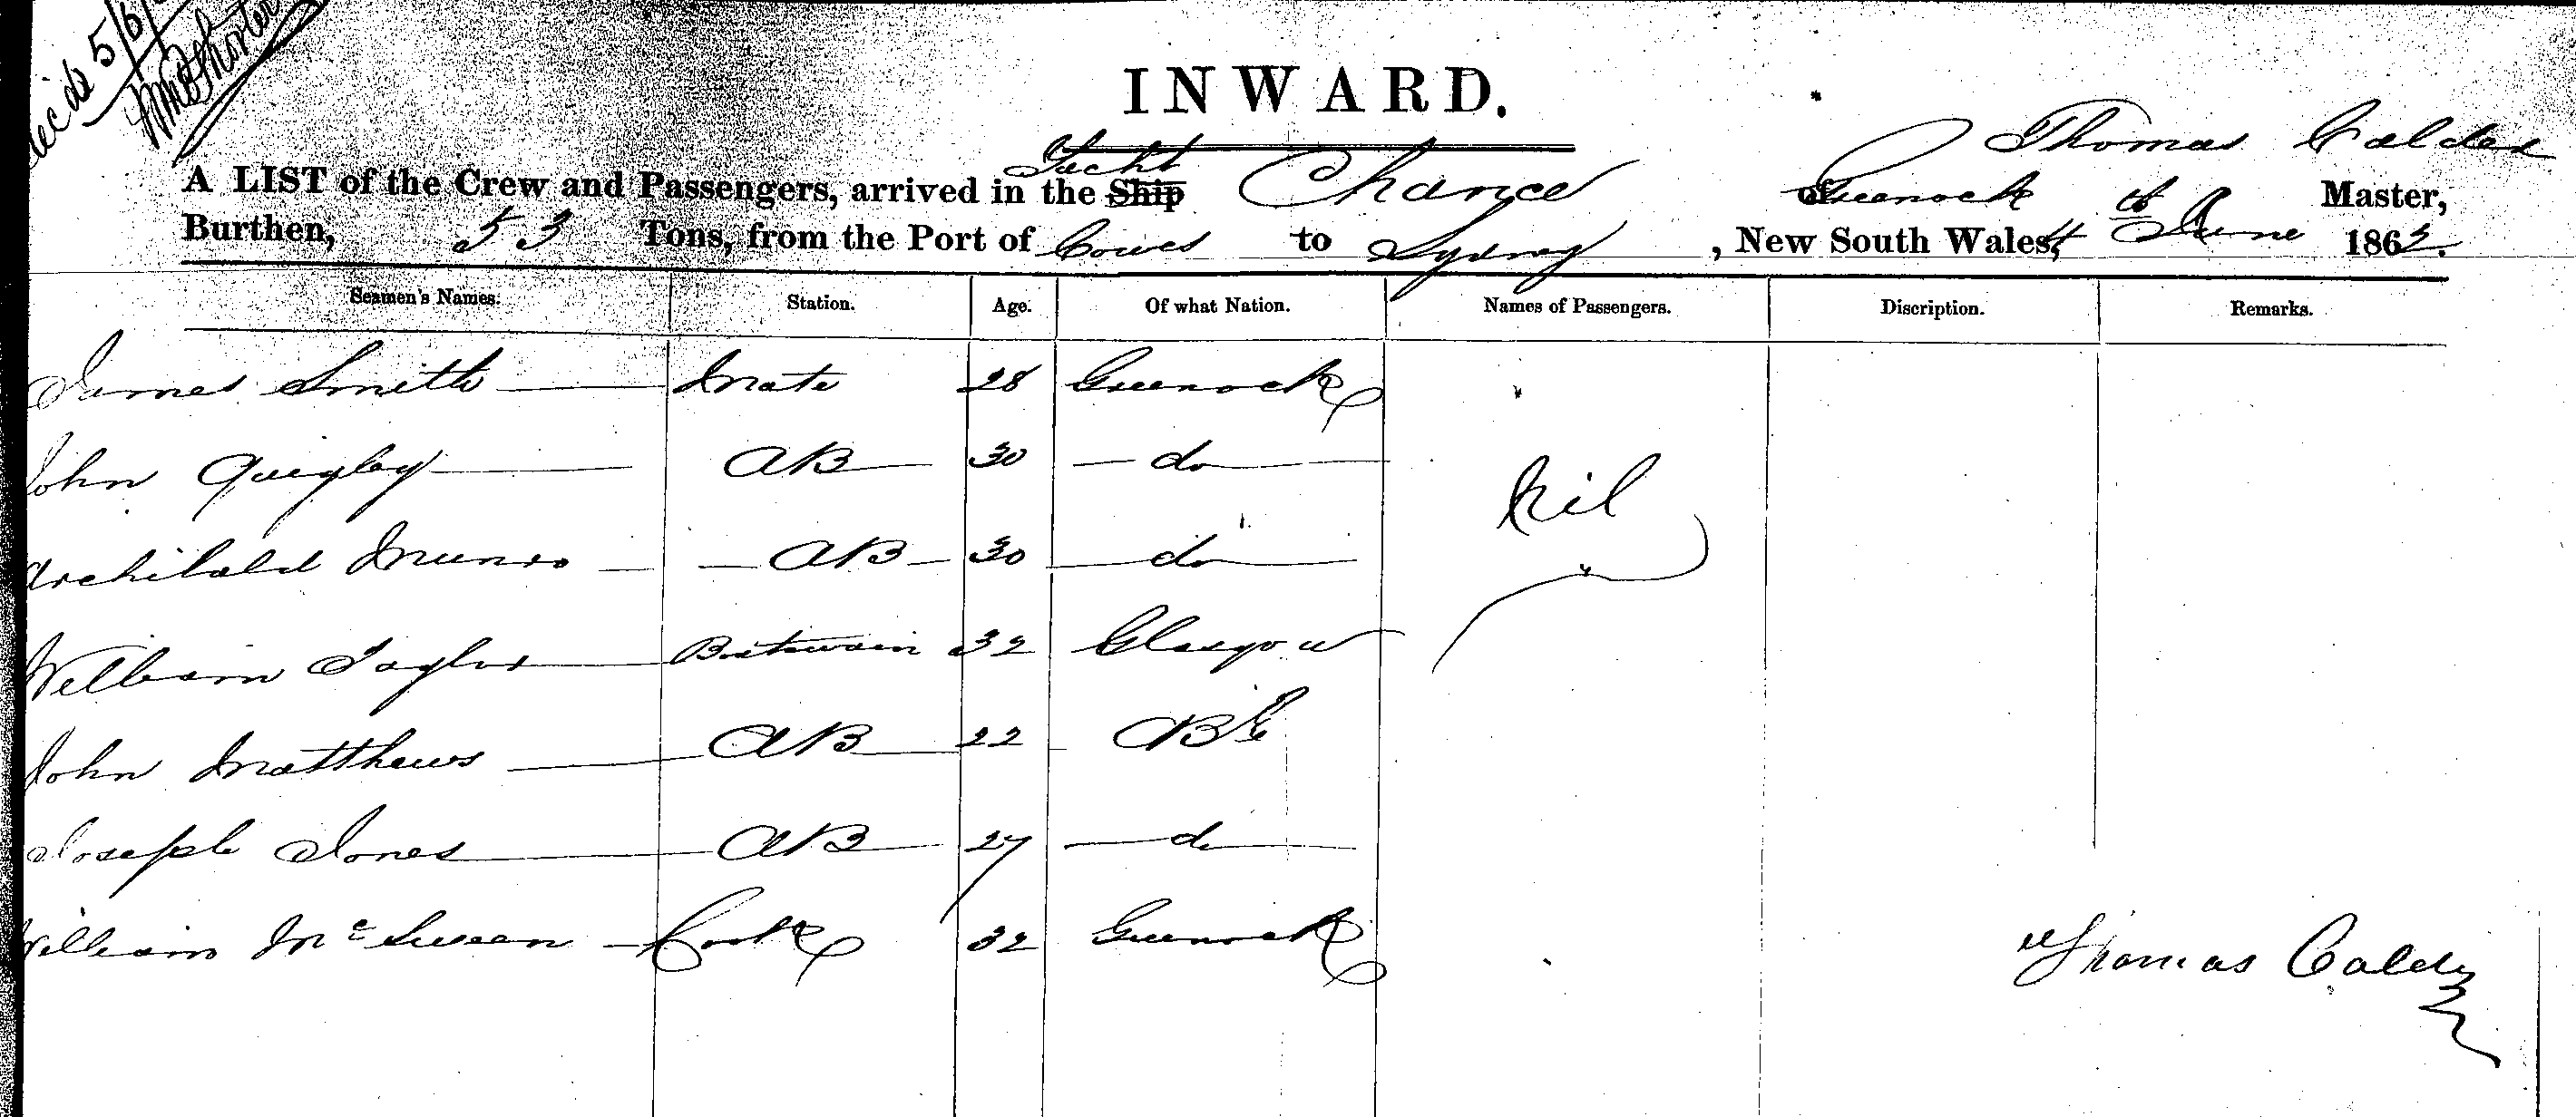 5/6/
INWARD.
Yacht Thomas Calder
A LIST of the Crew and Passengers, arrived in the Ship Chance of Greenock Master,
Burthen, 53 Tons, from the Port of Cowes to Sydney, New South Wales, 4th June 1862.
Seamen's Names. Station. Age. Of what Nation. Names of Passengers. Discription. Remarks.
James Smith Mate 28 Greenock
John Quigley AB 30 do
Nil
Archibald Munro AB 30 do
William Taylor Botswain 32 Glasgow
John Matthews AB 22
Joseph Jones AB 27 do
William Mc Cook 32 Greenock
Thomas Calder